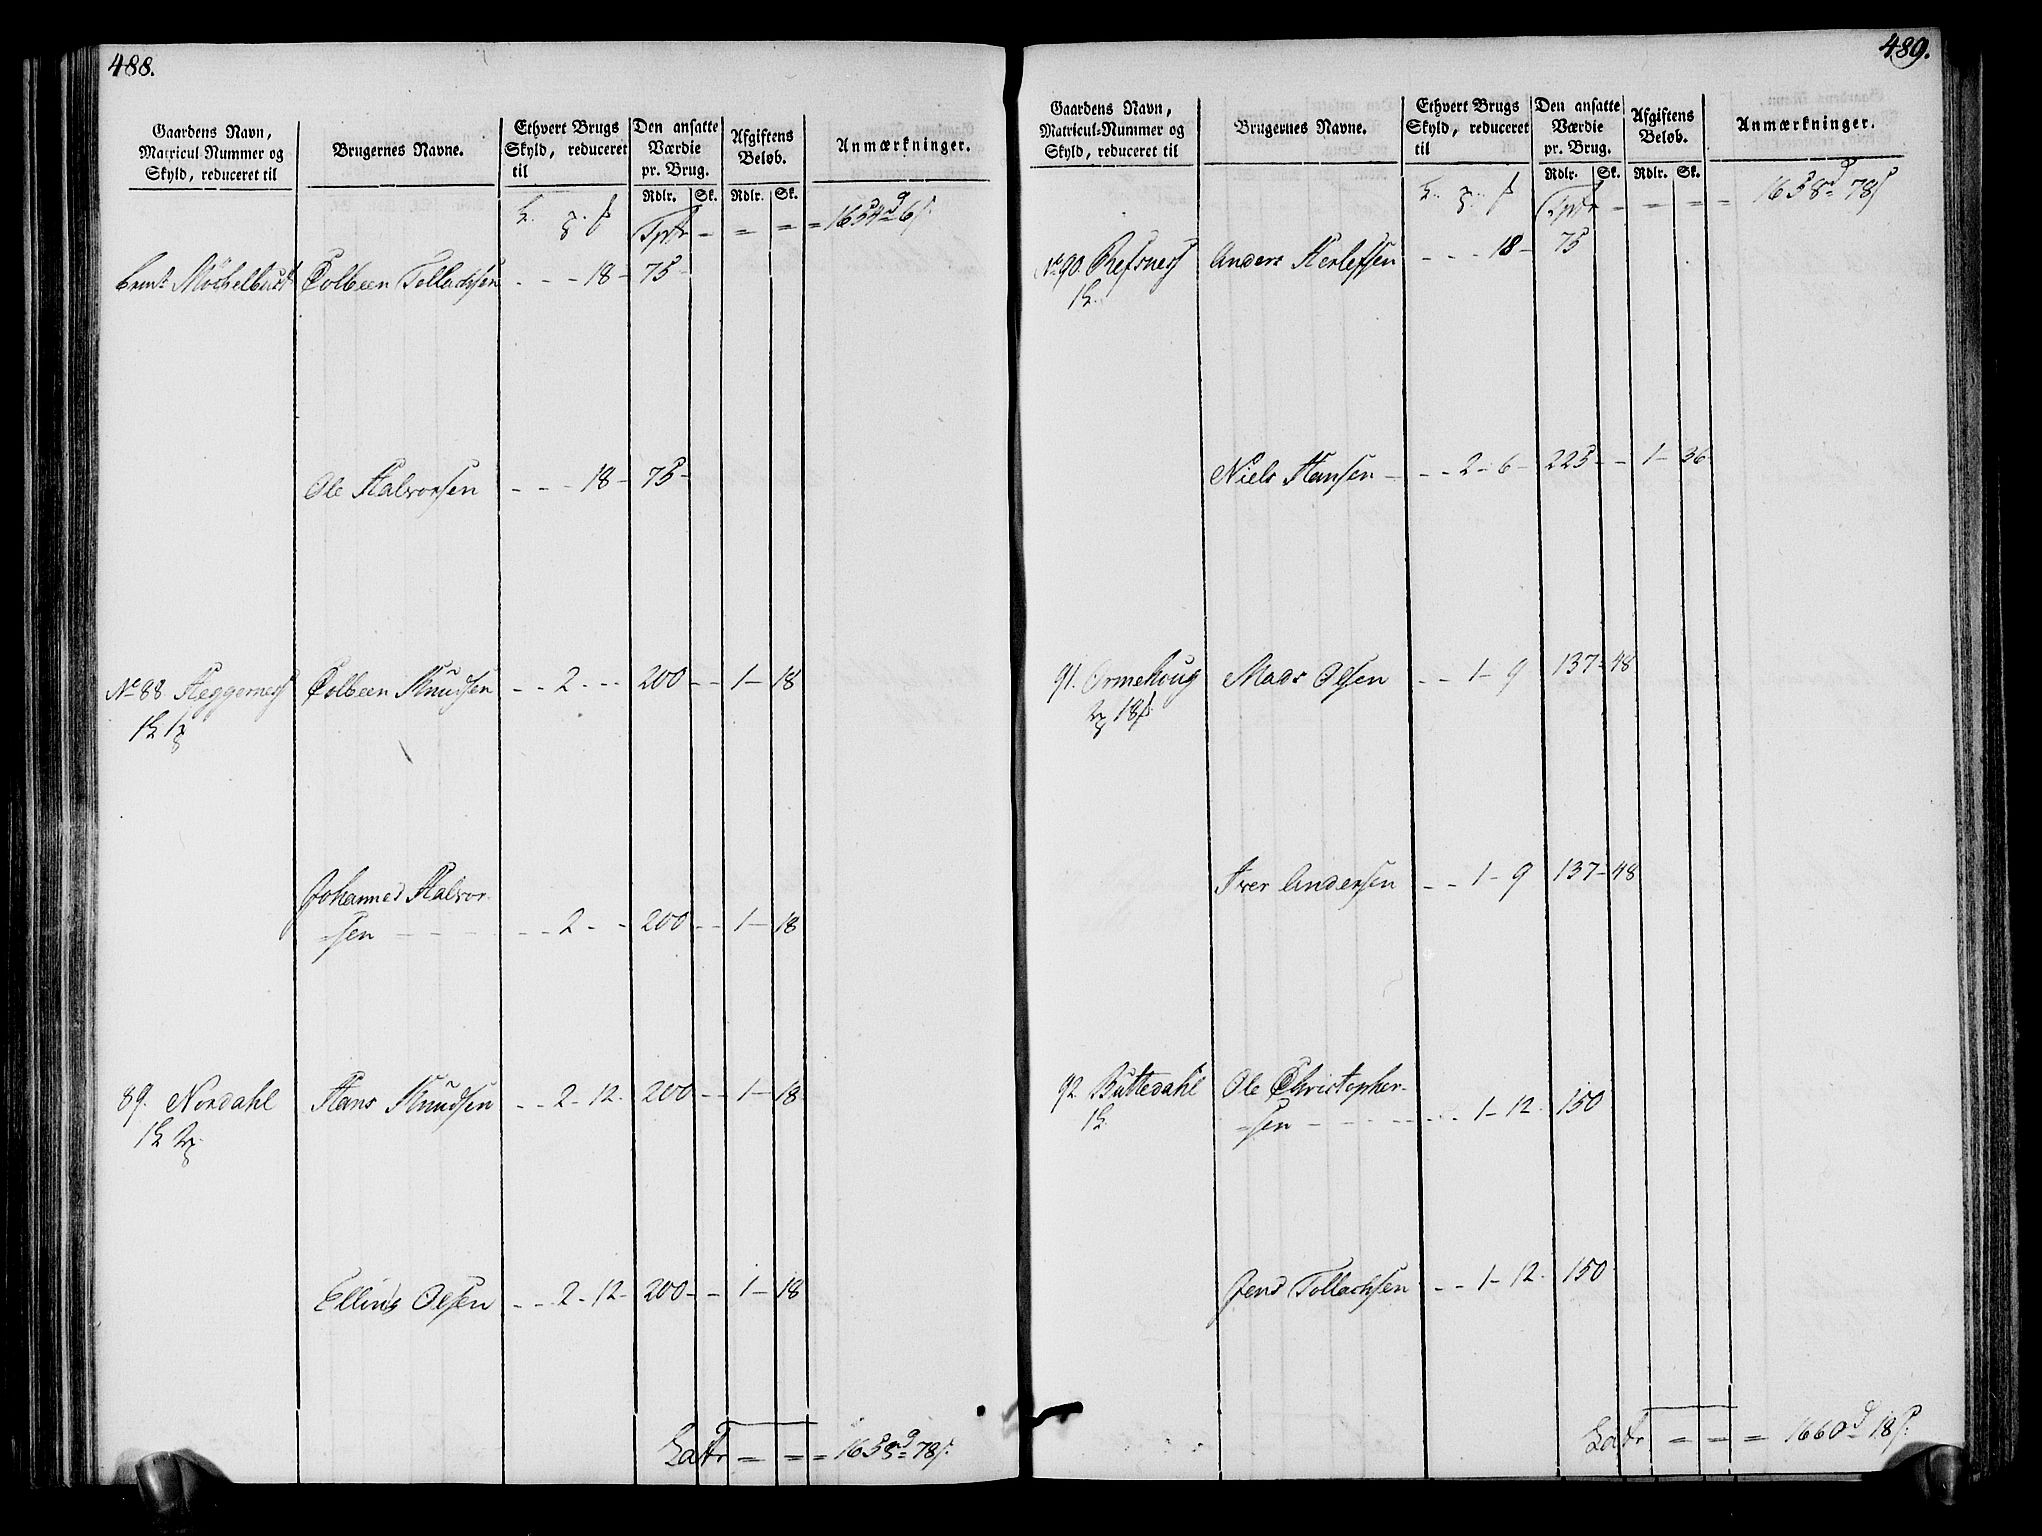 488.
Gaardens Navn, Matricul-Nummer og Skyld, reduceret til
Brugernes Navne.
Ethvert Brugs Skyld, reduceret til
Den ansatte Værdie pr. Brug.
Afgiftens Beløb.
Anmærkninger.
Rdlr. Sk. Rdlr. Sk.
Tpt - = = = 1654 6
Møchelbust Tolbeen Tollachsen - - - 18 - 75 -
Ole Halvorsen - - - 18 - 75 -
No 88. Heggernes Tolbeen Knudsen - - 2 - - 200 - - 1 - 18
Johannes Halvor-
-sen - - - - - 2 - - 200 - - 1 - 18
89. Nordahl Hans Knudsen - - 2 - 12 - 200 - - 1 - 18
Ellius Olsen - - 2 - 12 - 200 - - 1 - 18
Latr = = = 1658 78
489.
Gaardens Navn, Matricul-Nummer og Skyld, reduceret til
Brugernes Navne.
Ethvert Brugs Skyld, reduceret til
Den ansatte Værdie pr. Brug.
Afgiftens Beløb.
Anmærkninger.
Rdlr. Sk. Rdlr. Sk.
Tptr - - - = 1658 78
No 90. Refsness Anders Herlefsen - - - 18 - 75
Niels Hansen - - - 2 - 6 - 225 - - 1 - 36
91. Ormehoug Mads Olsen - - 1 - 9 137 - 48
18
Iver Andersen - - 1 - 9 137 - 48
92. Buttedahl Ole Christopher-
-sen - - - - - 1 - 12 - 150
Jens Tollachsen - - 1 - 12 - 150
Latr = = = 1660 18